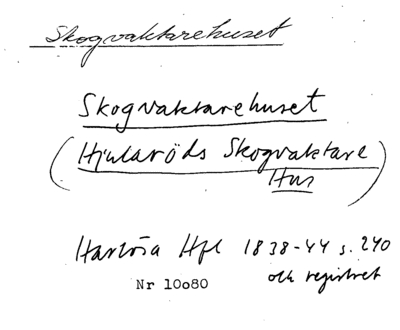 Skogvaktarehuset
Skogvaktarehuset
(Hjularöds Skogvaktare
Hus)
Harlösa Hfl 1838-44 s. 240
och registret
Nr 10o80